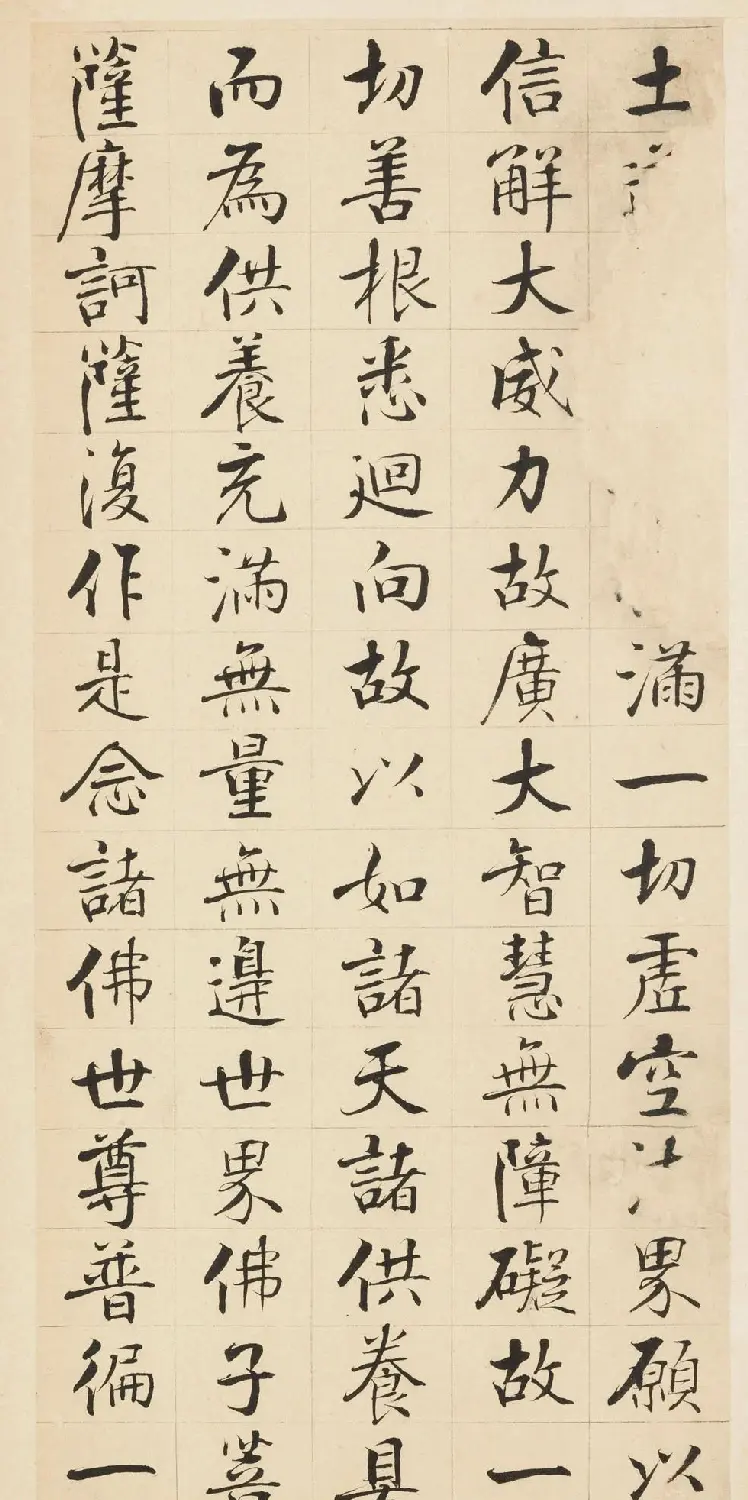 土滿一切虛空法界願以
信解大威力故廣大智慧無障礙故一
切善根悉迴向故以如諸天諸供養具
而為供養充滿無量無邊世界佛子菩
薩摩訶薩復作是念諸佛世尊普徧一